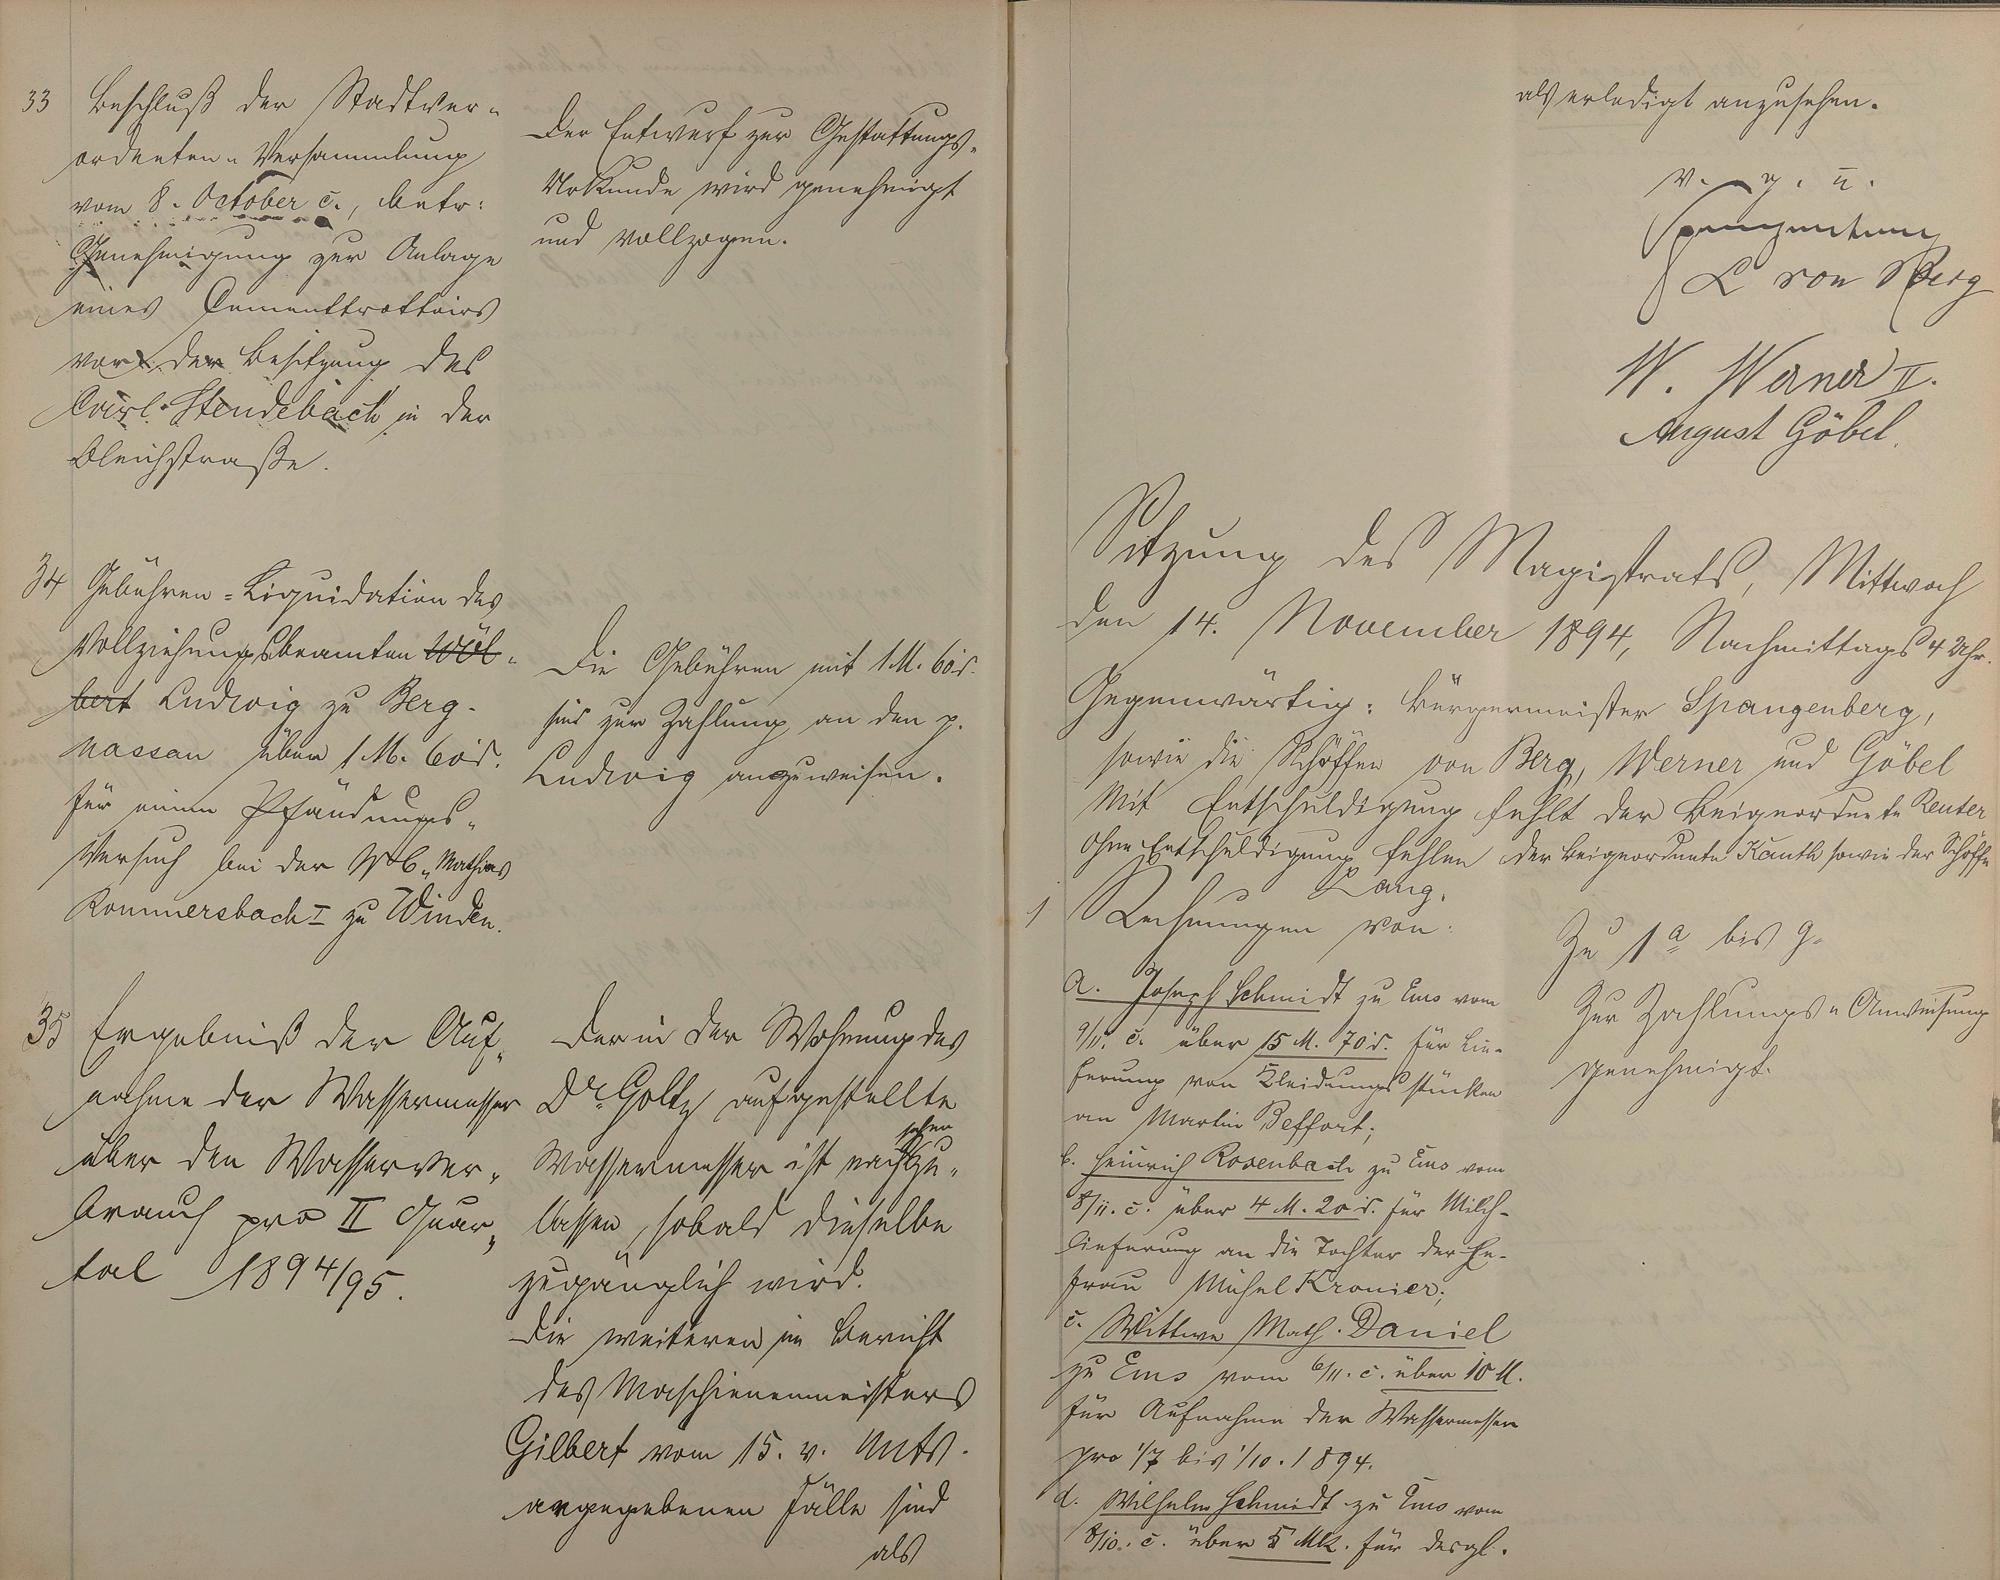 33 Beschluß der Stadtver-
ordneten-Versammlung
vom 8. October c., betr:
Genehmigung zur Anlage
eines Cementtrottoirs
vor der Besitzung des
Carl Stendebach in der
Bleichstraße.
Der Entwurf zur Gestattungs-
Urkunde wird genehmigt
und vollzogen.
34 Gebühren-Liquidation des
Vollziehungsbeamten Wöl-
bert Ludwig zu Berg-
nassau über 1 M. 60 d.
für einen Pfändungs-
Versuch bei der Mathias
Kommersbach I zu Winden.
Die Gebühren mit 1 M. 60 d.
sind zur Zahlung an den p.
Ludwig anzuweisen.
35 Ergebniß der Auf-
nahme der Wassermesser
über den Wasserver-
brauch pro II Quar-
tal 1894/95.
Der in der Wohnung des
Dr. Goltz aufgestellte
Wassermesser ist nachzu-
sehen
lassen, sobald dieselbe
zugänglich wird.
Die weiteren im Bericht
des Maschienenmeisters
Gilbert vom 15. v. Mts.
angegebenen Fälle sind
als
als erledigt anzusehen.
v. g. u.
Spangenberg
L von Berg
W. Werner II.
August Göbel.
Sitzung des Magistrats, Mittwoch
den 14. November 1894, Nachmittags 4 Uhr.
Gegenwärtig: Bürgermeister Spangenberg,
sowie die Schöffen von Berg, Werner und Göbel
Mit Entschuldigung fehlt der Beigeordnete Reuter
ohne Entschuldigung fehlen der Beigeordnete Kauth sowie der Schöffe
Lang.
1 Rechnungen von:
a. Joseph Schmidt zu Ems vom
9/11. c. über 15 M. 70 d. für Lie-
ferung von Kleidungsstücken
an Martin Beffort;
b. Heinrich Rosenbach zu Ems vom
8/11. c. über 4 M. 20 d. für Milch-
lieferung an die Tochter der Ehe-
frau Michel Kronier;
c. Wittwe Math. Daniel
zu Ems vom 6/11. c. über 10 M.
für Aufnahme der Wassermesser
pro 1/7 bis 1/10. 1894.
d. Wilhelm Schmidt zu Ems vom
8/10. c. über 5 Mk. für desgl.
Zu 1 a bis g.
Zur Zahlungs-Anweisung
genehmigt.